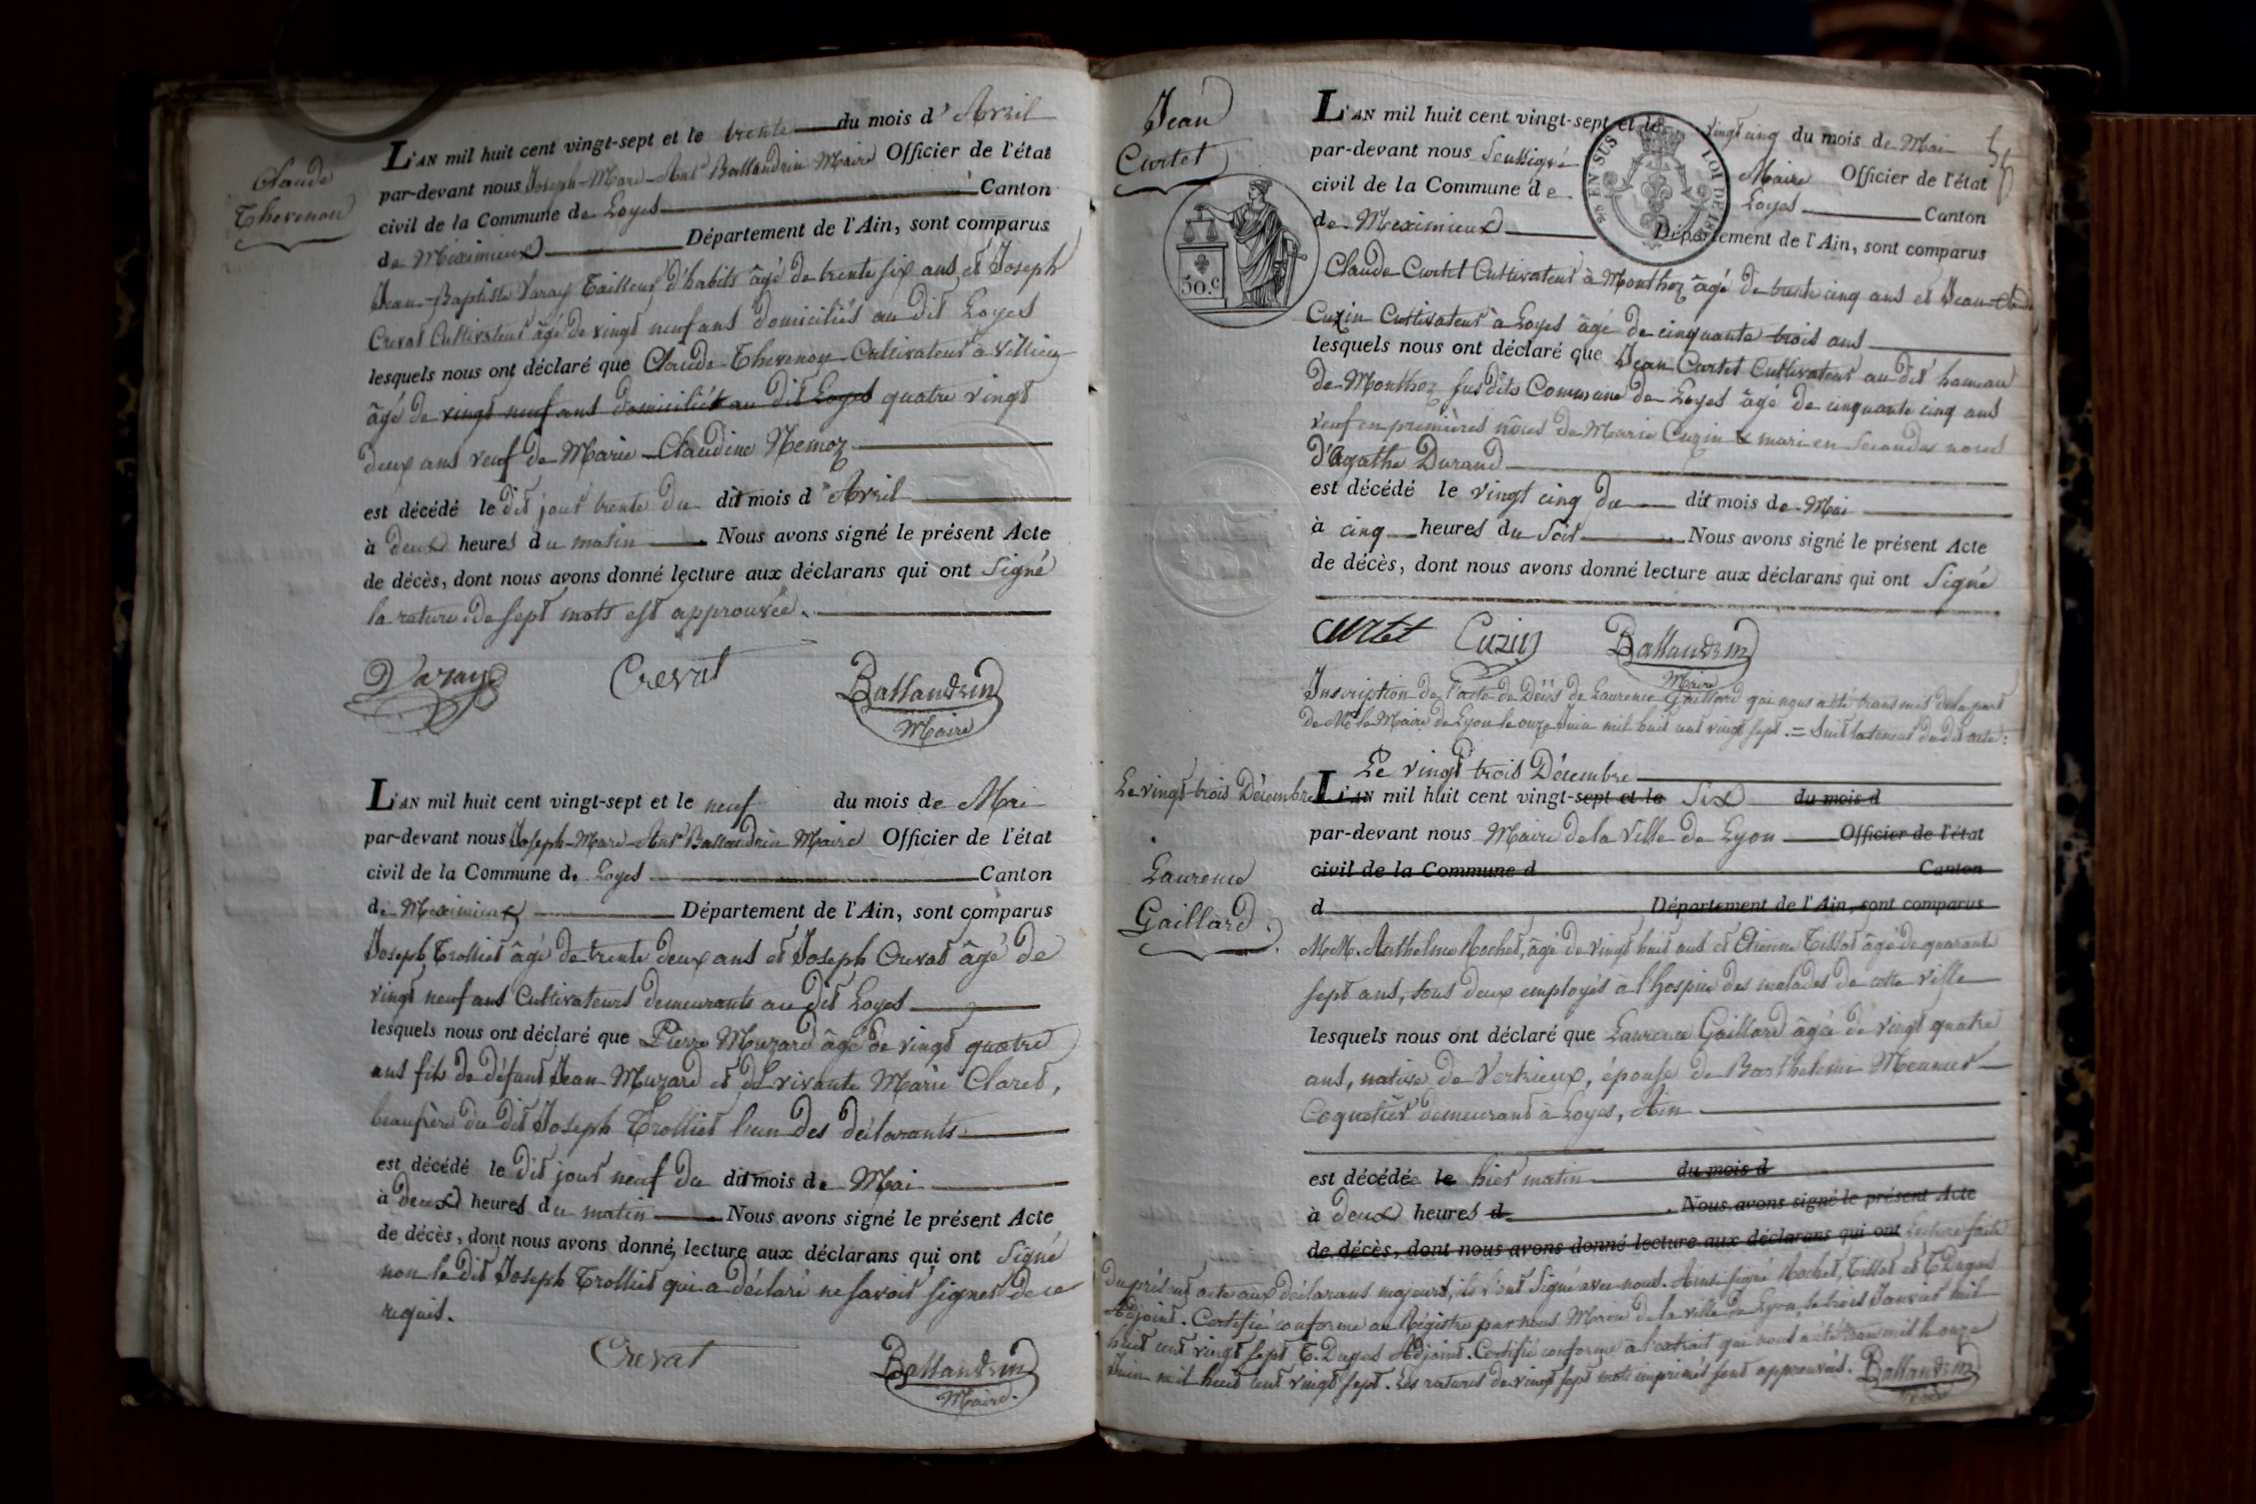 Claude
Thevenon
L'AN mil huit cent vingt-sept et le trente du mois d' Avril
par-devant nous Joseph-Marie-Ant.e Ballandrin Maire Officier de l'état
civil de la Commune de Loyes Canton
de Méximieux Département de l'Ain, sont comparus
Jean-Baptiste Varay Tailleur d'habits âgé de trente six ans et Joseph
Crevat Cultivateur âgé de vingt neuf ans domiciliés au dit Loyes
lesquels nous ont déclaré que Claude Thevenon Cultivateur à Villieu
âgé de vingt neuf ans domiciliés au dit Loyes quatre vingt
deux ans veuf de Marie-Claudine Nemoz
est décédé le dit jour trente du dit mois d'Avril
à deux heures du matin Nous avons signé le présent Acte
de décès, dont nous avons donné lecture aux déclarans qui ont Signé
la rature de sept mots est approuvée.
Varay Crevat Ballandrin
Maire
L'AN mil huit cent vingt-sept et le neuf du mois de Mai
par-devant nous Joseph-Marie-Ant.e Ballandrin Maire Officier de l'état
civil de la Commune de Loyes Canton
de Meximieux Département de l'Ain, sont comparus
Joseph Trolliet âgé de trente deux ans et Joseph Crevat âgé de
vingt neuf ans Cultivateurs demeurants au dit Loyes
lesquels nous ont déclaré que Pierre Muzard âgé de vingt quatre
ans fils de défunt Jean Muzard et de vivante Marie Claret,
beaufrère du dit Joseph Trolliet l'un des déclarants
est décédé le dit jour neuf du dit mois de Mai
à deux heures du matin Nous avons signé le présent Acte
de décès, dont nous avons donné lecture aux déclarans qui ont Signé
non le dit Joseph Trolliet qui a déclaré ne savoir signer de ce
requis.
Crevat Ballandrin
Maire.
Jean
Curtet
55
EN SUS LOI DE
50.c
L'AN mil huit cent vingt-sept et le vingt cinq du mois de Mai
par-devant nous Soussigné Maire Officier de l'état
civil de la Commune de Loyes Canton
de Meximieux Département de l'Ain, sont comparus
Claude Curtet Cultivateur à Monthoz âgé de trente cinq ans et Jean-Claude
Cuzin Cultivateur à Loyes âgé de cinquante trois ans
lesquels nous ont déclaré que Jean Curtet Cultivateur au dit hameau
de Monthoz susdite Commune de Loyes âgé de cinquante cinq ans
veuf en premières nôces de Marie Cuzin & mari en secondes noces
d'Agathe Durand
est décédé le vingt cinq du dit mois de Mai
à cinq heures du soir Nous avons signé le présent Acte
de décès, dont nous avons donné lecture aux déclarans qui ont Signé
curtet Cuzin Ballandrin
Maire
Inscription de l'acte de Décès de Laurence Gaillard qui nous a été transmis de la part
de Mr le Maire de Lyon le onze Juin mil huit cent vingt sept. = Suit la teneur du dit acte:
Le vingt trois Décembre
Le vingt trois Décembre
L'AN mil huit cent vingt-sept et le Six du mois d
par-devant nous Maire de la Ville de Lyon Officier de l'état
civil de la Commune d Canton
d Département de l'Ain, sont comparus
Laurence
Gaillard.
M.M. Anthelme Rochet, âgé de vingt huit ans et Etienne Tissot âgé de quarante
sept ans, tous deux employés à l'hospice des malades de cette ville
lesquels nous ont déclaré que Laurence Gaillard âgée de vingt quatre
ans, native de Vertrieux, épouse de Barthelemi Meunier
Coquetier demeurant à Loyes, Ain
est décédée le hier matin du mois d
à deux heures d . Nous avons signé le présent Acte
de décès, dont nous avons donné lecture aux déclarans qui ont Lecture faite
du présent acte aux déclarans majeurs, ils l'ont signé avec nous. Ainsi signé Rochet, Tissot et T. Dugas
Adjoint. Certifié conforme au Régistre par nous Maire de la ville de Lyon, le trois Janvier mil
huit cent vingt sept T. Dugas Adjoint. Certifié conforme à l'extrait qui nous a été transmis le onze
Juin mil huit cent vingt sept. Les ratures de vingt sept mots imprimés sont approuvées. Ballandrin
Maire